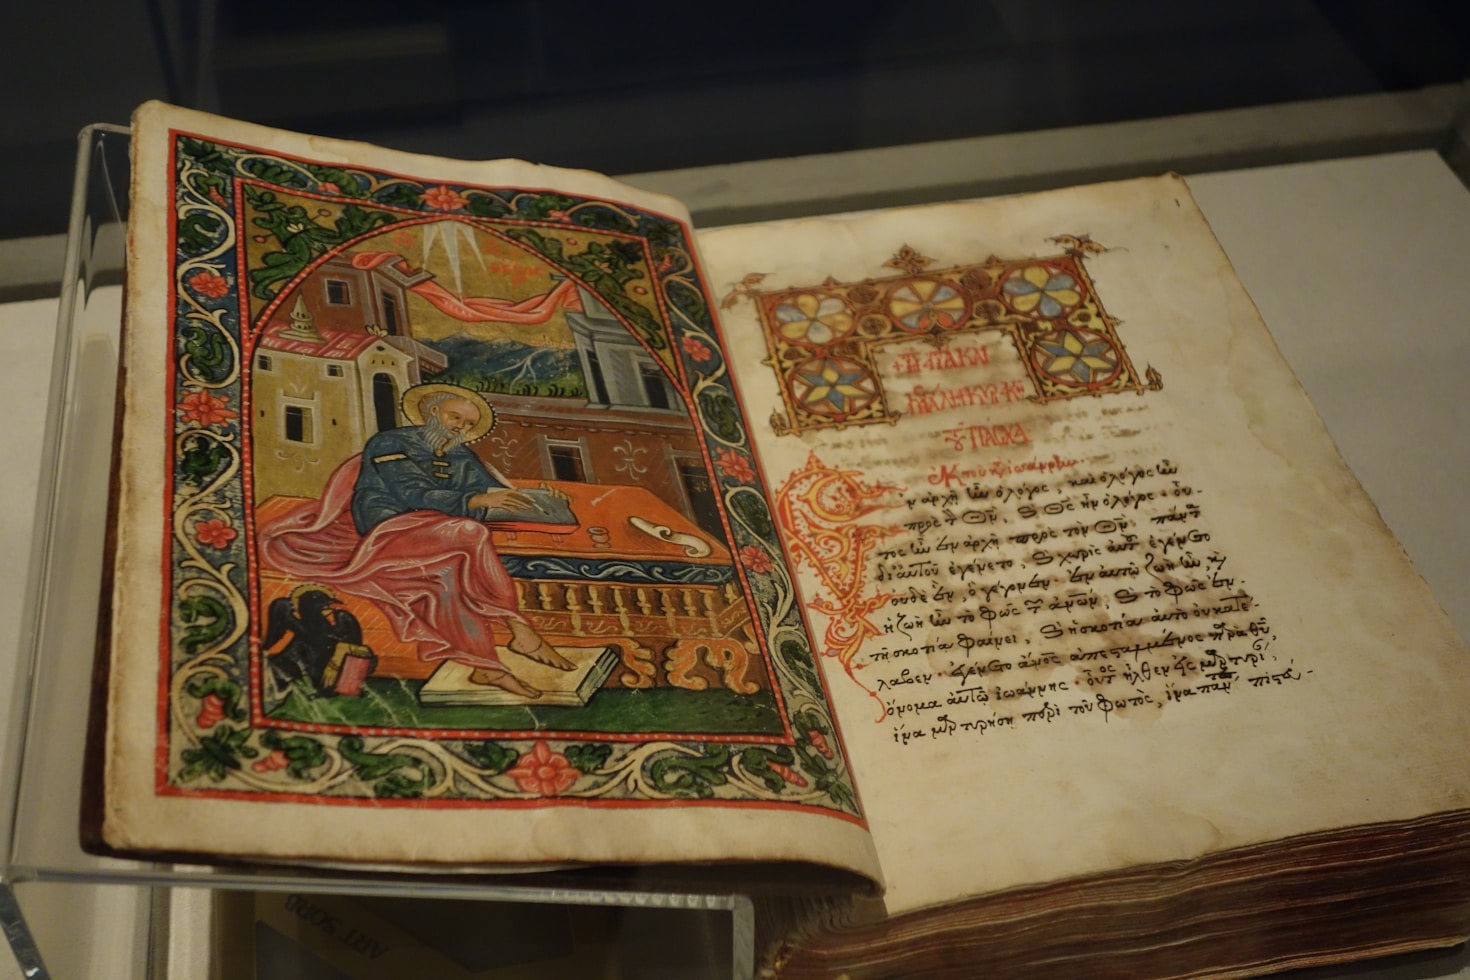 τοῦ Πάσχα
Ἐκ τοῦ κ(α)τ(ὰ) Ἰωάννην.
ν ἀρχῇ ἦν ὁ λόγος, καὶ ὁ λόγος ἦν
πρὸς τ(ὸν) Θν, κ(αὶ) Θς ἦν ὁ λόγος· οὗ-
τος ἦν ἐν ἀρχῇ πρὸς τὸν Θν· πάντ(α)
δι αὐτοῦ ἐγένετο, κ(αὶ) χωρὶς αὐτ(οῦ) ἐγένετο
οὐδὲ ἕν, ὃ γέγονεν. ἐν αὐτῷ ζωὴ ἦν, κ(αὶ)
ἡ ζωὴ ἦν τὸ φῶς τ(ῶν) ἀνων, κ(αὶ) τὸ φῶς ἐν
τῇ σκοτίᾳ φαίνει, κ(αὶ) ἡ σκοτία αὐτὸ οὐ κατέ-
λαβεν. ἐγένετο ἄνος ἀπεσταλμένος π(α)ρὰ Θυ,
ὄνομα αὐτῷ Ἰωάννης. οὗτος ἦλθεν εἰς μ(α)ρτυρί(αν),
ἵνα μ(α)ρτυρήσῃ περὶ τοῦ φωτὸς, ἵνα πάντ(ες) πιστεύ-
ART SORB